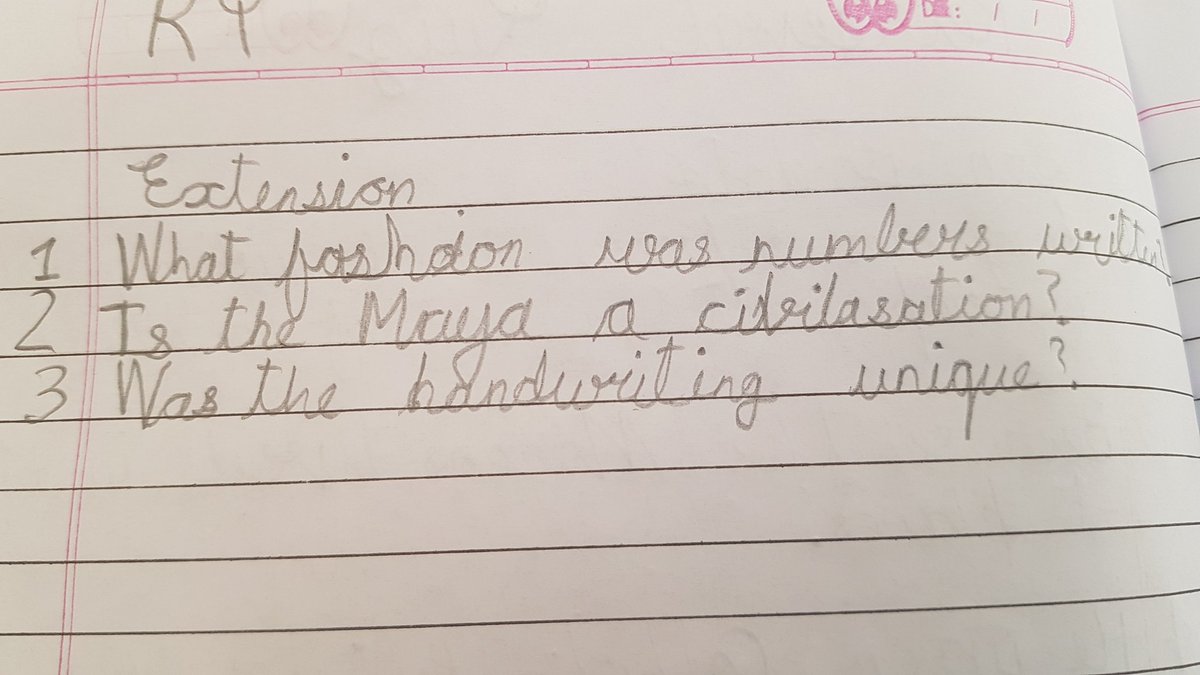 R 4
Extension
1 What fashoion was numbers written
2 Is the Maya a civilasation?
3 Was the handwriting unique?